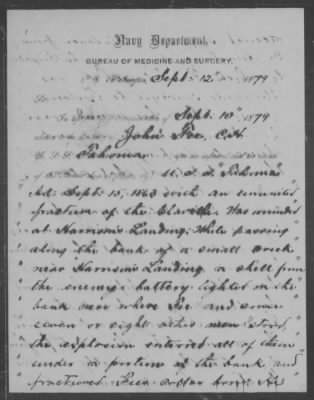 Navy Department,
BUREAU OF MEDICINE AND SURGERY,
Sept. 12" 1879
Sept. 10" 1879
John Fee, 
U.S.S.
Sept. 15, 1863 with an ununited
fracture of the Clavicle. Was wounded
at Harrison's Landing. While passing
along the bank of a small creek
near Harrison's Landing a shell from
the enemy's battery lighted in the
bank near where Fee and some
seven or eight other men stood,
the explosion interred all of them
under a portion of the bank and
fractured Fee's collar bone.